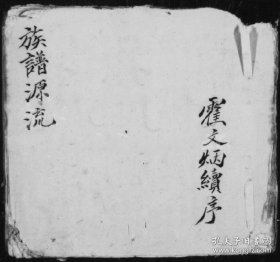 霍文炳續序
族譜源流
孔夫子旧书网